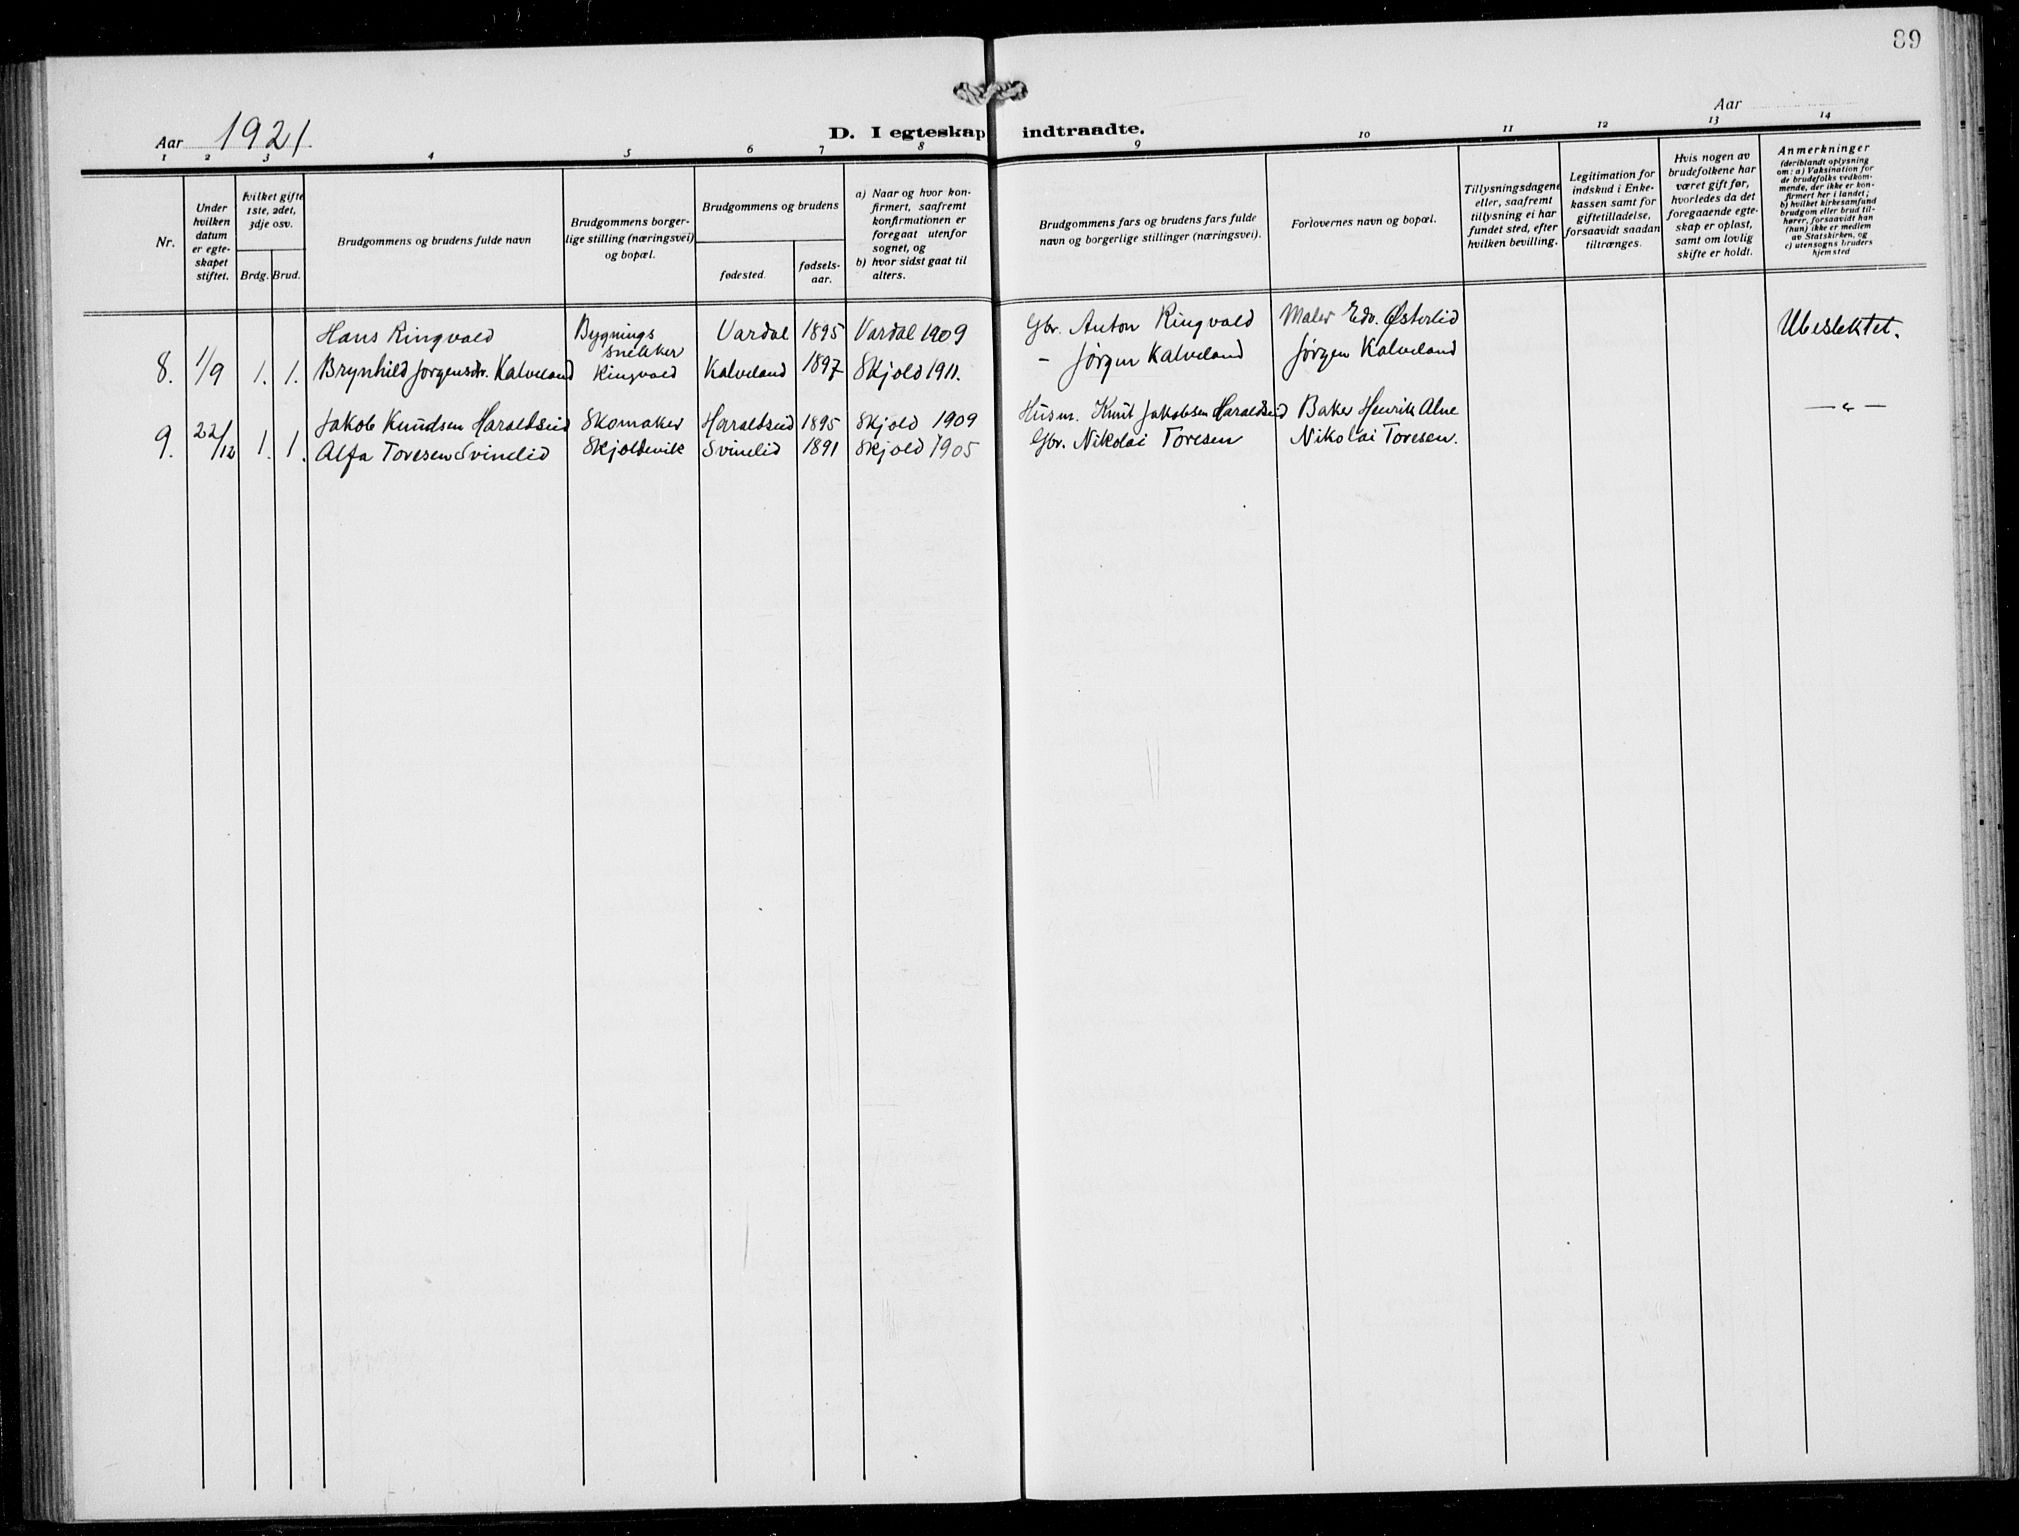 89
Aar 1921
D. I egteskap indtraadte.
Aar
1 2 3 4 5 6 7 8 9 10 11 12 13 14
Nr.
Under
hvilken
datum
er egte-
skapet
stiftet.
hvilket gifte
1ste, 2det,
3dje osv.
Brdg. Brud.
Brudgommens og brudens fulde navn
Brudgommens borger-
lige stilling (næringsvei)
og bopæl.
Brudgommens og brudens
fødested.
fødsels-
aar.
a) Naar og hvor kon-
firmert, saafremt
konfirmationen er
foregaat utenfor
sognet, og
b) hvor sidst gaat til
alters.
Brudgommens fars og brudens fars fulde
navn og borgerlige stillinger (næringsvei).
Forlovernes navn og bopæl.
Tillysningsdagene
eller, saafremt
tillysning ei har
fundet sted, efter
hvilken bevilling.
Legitimation for
indskud i Enke-
kassen samt for
giftetilladelse,
forsaavidt saadan
tiltrænges.
Hvis nogen av
brudefolkene har
været gift før,
hvorledes da det
foregaaende egte-
skap er opløst,
samt om lovlig
skifte er holdt.
Anmerkninger
(deriblandt oplysning
om: a) Vaksination for
de brudefolks vedkom-
mende, der ikke er kon-
firmert her i landet;
b) hvilket kirkesamfund
brudgom eller brud til-
hører, forsaavidt han
(hun) ikke er medlem
av Statskirken, og
c) utensogns bruders
hjemsted
Hans Ringvold Bygnings Vardal 1895 Vardal 1909 Gbr. Anton Ringvold Maler Edv. Østerlid Ubeslektet.
snekker
8. 1/9 1. 1. Brynhild Jørgensdr. Kalveland Ringvold Kalveland 1897 Skjold 1911. – Jørgen Kalveland Jørgen Kalveland
Jakob Knudsen Haraldseid Skomaker Haraldseid 1895 Skjold 1909 Husm. Knut Jakobsen Haraldseid Baker Henrik Alne —"—
9. 22/12 1. 1. Alfa Toresen Svinelid Skjoldevik Svinelid 1891 Skjold 1905 Gbr. Nikolai Toresen Nikolai Toresen.